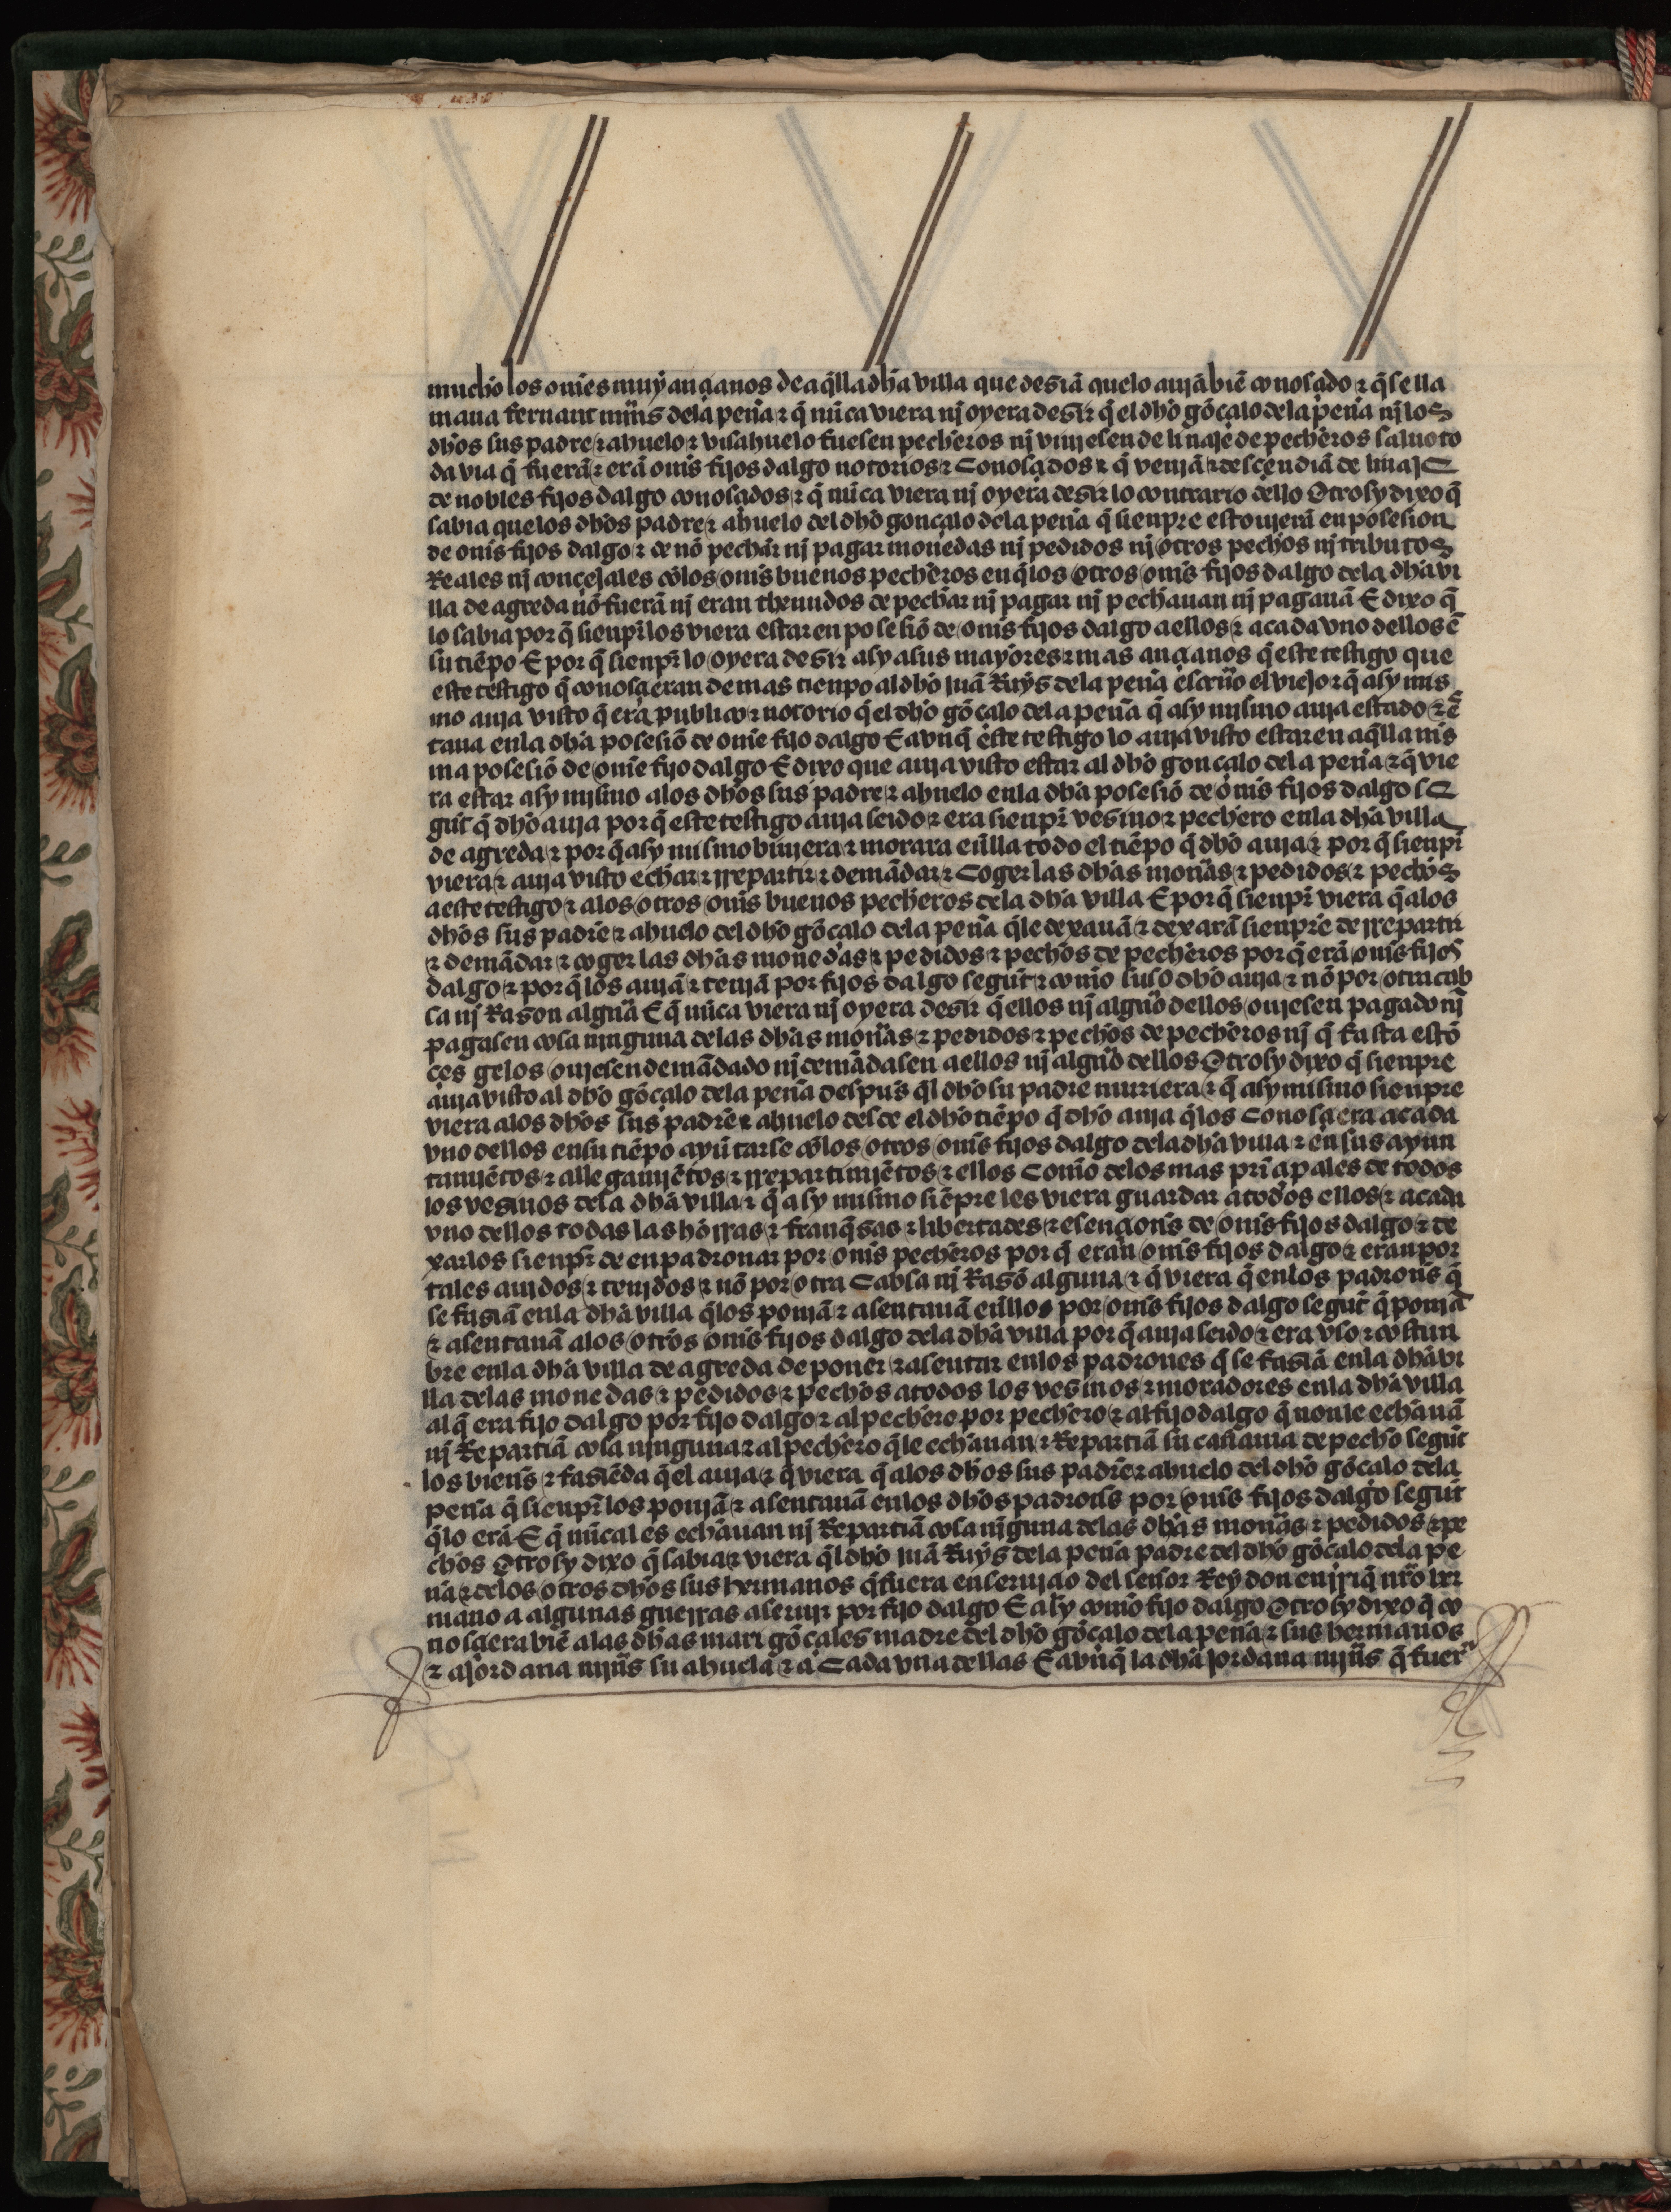 mucho los om̃es muy ançianos de aq̃lla dha villa que desiã quelo auiã biẽ conosçido ⁊ q̃ se lla
maua fernant mĩns dela peña ⁊ q̃ nũca viera nj oyera desir q̃ el dho gõçalo dela peña nj los
dhos sus padre ⁊ ahuelo ⁊ visahuelo fuesen pecheros nj vinjesen de linaje de pecheros saluo to
da via q̃ fuerã ⁊ erã omĩs fijos dalgo notorios ⁊ Conosçidos ⁊ q̃ venjã ⁊ desçendiã de linaje
de nobles fijos dalgo conosçidos ⁊ q̃ nũca viera nj oyera desir lo contrario dello Otrosy dixo q̃
sabia quelos dhos padre ⁊ ahuelo del dho gonçalo dela peña q̃ sienpre estouierã en posesion
de omĩs fijos dalgo ⁊ de nõ pechar nj pagar monedas nj pedidos nj otros pechos nj tributos
Reales nj conçejales cõlos omĩs buenos pecheros en q̃ los otros omĩs fijos dalgo dela dha vi
lla de agreda nõ fuerã nj eran thenudos de pechar nj pagar nj pechauan nj pagauã E dixo q̃
lo sabia por q̃ sienpr̃ los viera estar en posesiõ de omĩs fijos dalgo aellos ⁊ acada vno dellos ẽ
su tiẽpo E por q̃ sienpr̃ lo oyera desir asy asus mayores ⁊ mas ançianos q̃ este testigo que
este testigo q̃ conosçieran de mas tienpo al dho juã Ruys dela peña escriũo el viejo ⁊ q̃ asy mis
mo auja visto q̃ era publico ⁊ notorio q̃ el dho gõçalo dela peña q̃ asy mismo auja estado ⁊ ẽ
taua enla dha posesiõ de om̃e fijo dalgo E avnq̃ este testigo lo auja visto estar en aq̃lla mis
ma posesiõ de om̃e fijo dalgo E dixo que auja visto estar al dho gonçalo dela peña ⁊ q̃ vie
ra estar asy mismo alos dhos sus padre ⁊ ahuelo enla dha posesiõ de omĩs fijos dalgo se
gũt q̃ dho auja por q̃ este testigo auja seido ⁊ era sienpr̃ vesino ⁊ pechero enla dha villa
de agreda ⁊ por q̃ asy mismo biujera ⁊ morara eñlla todo el tiẽpo q̃ dho auja ⁊ por q̃ sienpr̃
viera ⁊ auja visto echar ⁊ rrepartir ⁊ demãdar ⁊ Coger las dhas moñas ⁊ pedidos ⁊ pechos
aeste testigo ⁊ alos otros omĩs buenos pecheros dela dha villa E por q̃ sienpr̃ viera q̃ alos
dhos sus padre ⁊ ahuelo del dho gõçalo dela peña q̃ le dexauã ⁊ dexarã sienpre de rrepartir
⁊ demãdar ⁊ coger las dhas monedas ⁊ pedidos ⁊ pechos de pecheros por q̃ erã omĩs fijos
dalgo ⁊ por q̃ los aujã ⁊ tenjã por fijos dalgo segũt ⁊ como suso dho auja ⁊ nõ por otra cab
sa nj Rason algũa E q̃ nũca viera nj oyera desir q̃ ellos nj algũo dellos oujesen pagado nj
pagasen cosa ninguna delas dhas moñas ⁊ pedidos ⁊ pechos de pecheros nj q̃ fasta estõ
çes gelos oujesen demãdado nj demãdasen aellos nj algũo dellos Otrosy dixo q̃ sienpre
auja visto al dho gõçalo dela peña despũs q̃l dho su padre muriera ⁊ q̃ asy mismo sienpre
viera alos dhos sus padre ⁊ ahuelo desde el dho tiẽpo q̃ dho auja q̃ los Conosçiera acada
vno dellos ensu tiẽpo ayũtarse cõlos otros omĩs fijos dalgo dela dha villa ⁊ en sus ayun
tamjẽtos ⁊ allegamjẽtos ⁊ rrepartimjẽtos ⁊ ellos Como delos mas prĩçipales de todos
los vesinos dela dha villa ⁊ q̃ asy mismo siẽpre les viera guardar atodos ellos ⁊ acada
vno dellos todas las horras ⁊ franq̃sas ⁊ libertades ⁊ esençionĩs de omĩs fijos dalgo ⁊ de
xarlos sienpr̃ de enpadronar por omĩs pecheros por q̃ eran omĩs fijos dalgo ⁊ eran por
tales aujdos ⁊ tenjdos ⁊ nõ por otra Cabsa nj Rasõ alguna ⁊ q̃ viera q̃ enlos padronĩs q̃
se fasiã enla dha villa q̃ los ponjã ⁊ asentauã eñllos por omĩs fijos dalgo segũt q̃ ponjã
⁊ asentauã alos otros omĩs fijos dalgo dela dha villa por q̃ auja seido ⁊ era vso ⁊ costun
bre enla dha villa de agreda de poner ⁊ asentar enlos padrones q̃ se fasiã enla dha vi
lla delas monedas ⁊ pedidos ⁊ pechos atodos los vesinos ⁊ moradores enla dha villa
al q̃ era fijo dalgo por fijo dalgo ⁊ al pechero por pechero ⁊ al fijo dalgo q̃ nonle echauã
nj Repartiã cosa njnguna ⁊ al pechero q̃ le echauan ⁊ Repartiã su cañama de pecho segũt
los bienĩs ⁊ fasiẽda q̃ el auja ⁊ q̃ viera q̃ alos dhos sus padre ⁊ ahuelo del dho gõçalo dela
peña q̃ sienpr̃ los ponjã ⁊ asentauã enlos dhos padronĩs por omĩs fijos dalgo segũt
q̃ lo erã E q̃ nũca les echauan nj Repartiã cosa nĩguna delas dhas moñas ⁊ pedidos ⁊ pe
chos Otrosy dixo q̃ sabia ⁊ viera q̃l dho juã Ruys dela peña padre del dho gõçalo dela pe
ña ⁊ delos otros dhos sus hermanos q̃ fuera en serujçio del señor Rey don enrriq̃ nr̃o her
mano a algunas guerras aserujr por fijo dalgo E asy como fijo dalgo Otrosy dixo q̃ co
nosçiera biẽ alas dhas mari gõçales madre del dho gõçalo dela peña ⁊ sus hermanos
⁊ ajordana mjñs su ahuela ⁊ a Cada vna dellas E avnq̃ la dha jordana mjñs q̃ fuer